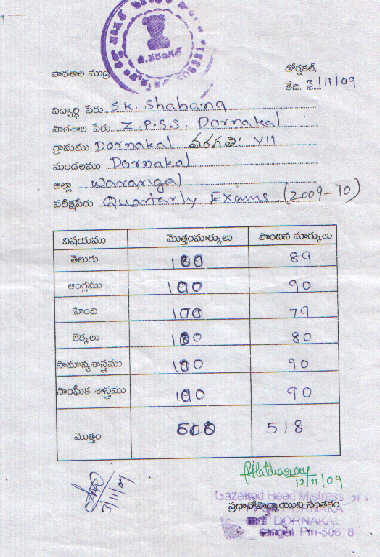 పాఠశాల ముద్ర
తేది. 3/11/09
విద్యార్థి పేరు S.K. Shabana
పాఠశాల పేరు Z.P.S.S. Dornakal
గ్రామము Dornakal తరగతి VII
మండలము Dornakal
జిల్లా Warangal
పరీక్షపేరు Quarterly Exams (2009-10)
విషయము మొత్తంమార్కులు పొందిన మార్కులు
తెలుగు 100 89
ఆంగ్లము 100 90
హింది 100 79
లెక్కలు 100 80
సామాన్యశాస్త్రము 100 90
సాంఘీక శాస్త్రము 100 90
మొత్తం 600 518
12/11/09
Gazetted Head Mistress
ప్రధానోపాధ్యాయుని సంతకం
DORNAKAL